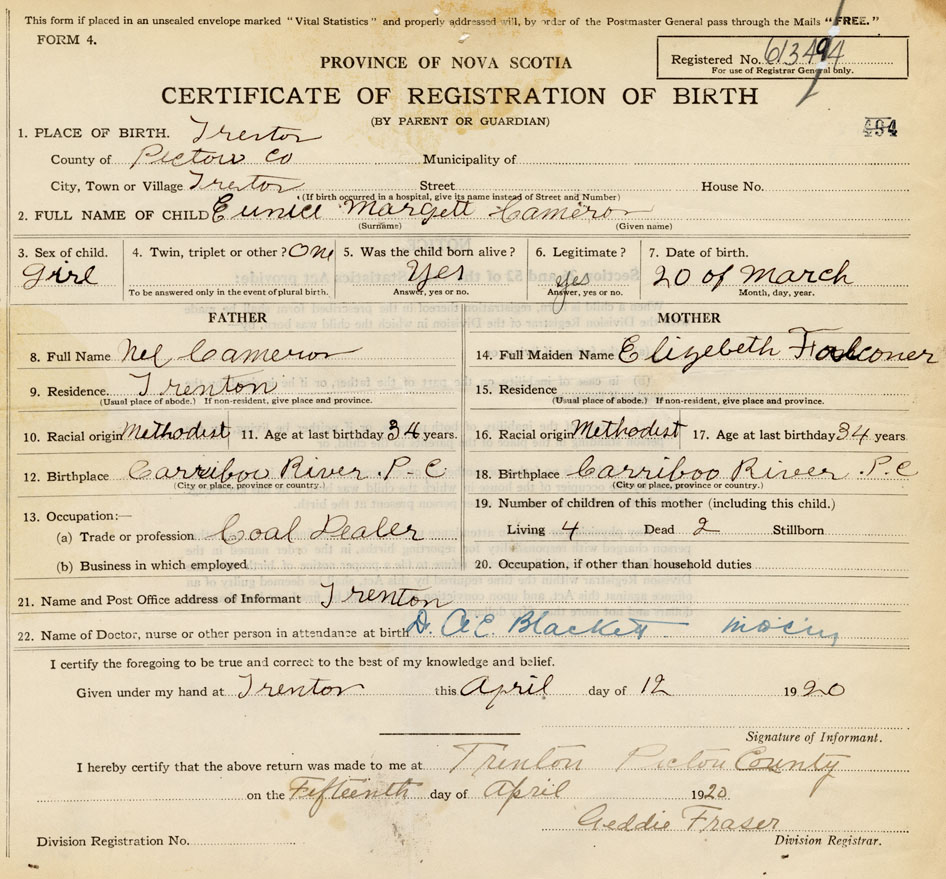 This form if placed in an unsealed envelope marked "Vital Statistics" and properly addressed will, by order of the Postmaster General pass through the Mails "FREE."
FORM 4.
Registered No. 613494
For use of Registrar General only.
PROVINCE OF NOVA SCOTIA
CERTIFICATE OF REGISTRATION OF BIRTH
(BY PARENT OR GUARDIAN)
494
1. PLACE OF BIRTH. Trenton
County of Pictou Co Municipality of
City, Town or Village Trenton Street House No.
(If birth occurred in a hospital, give its name instead of Street and Number)
2. FULL NAME OF CHILD Eunice Margett Cameron
(Surname) (Given name)
3. Sex of child. 4. Twin, triplet or other? One 5. Was the child born alive? 6. Legitimate? 7. Date of birth.
Girl Yes yes 20 of March
To be answered only in the event of plural birth. Answer, yes or no. Answer, yes or no. Month, day, year.
FATHER MOTHER
8. Full Name Nel Cameron 14. Full Maiden Name Elizebeth Falconer
9. Residence. Trenton 15. Residence
(Usual place of abode.) If non-resident, give place and province. (Usual place of abode.) If non-resident, give place and province.
10. Racial origin Methodist 11. Age at last birthday 34 years. 16. Racial origin Methodist 17. Age at last birthday 34 years
12. Birthplace Carribou River P-C 18. Birthplace Carriboo River P.C
(City or place, province or country.) (City or place, province or country.)
19. Number of children of this mother (including this child.)
13. Occupation:—
(a) Trade or profession Coal Dealer Living 4 Dead 2 Stillborn
(b) Business in which employed 20. Occupation, if other than household duties
21. Name and Post Office address of Informant Trenton
22. Name of Doctor, nurse or other person in attendance at birth Dr. Blackett
I certify the foregoing to be true and correct to the best of my knowledge and belief.
Given under my hand at Trenton this April day of 12 1920
Signature of Informant.
I hereby certify that the above return was made to me at Trenton Pictou County
on the Fifteenth day of April 1920
Geddie Fraser
Division Registration No. Division Registrar.